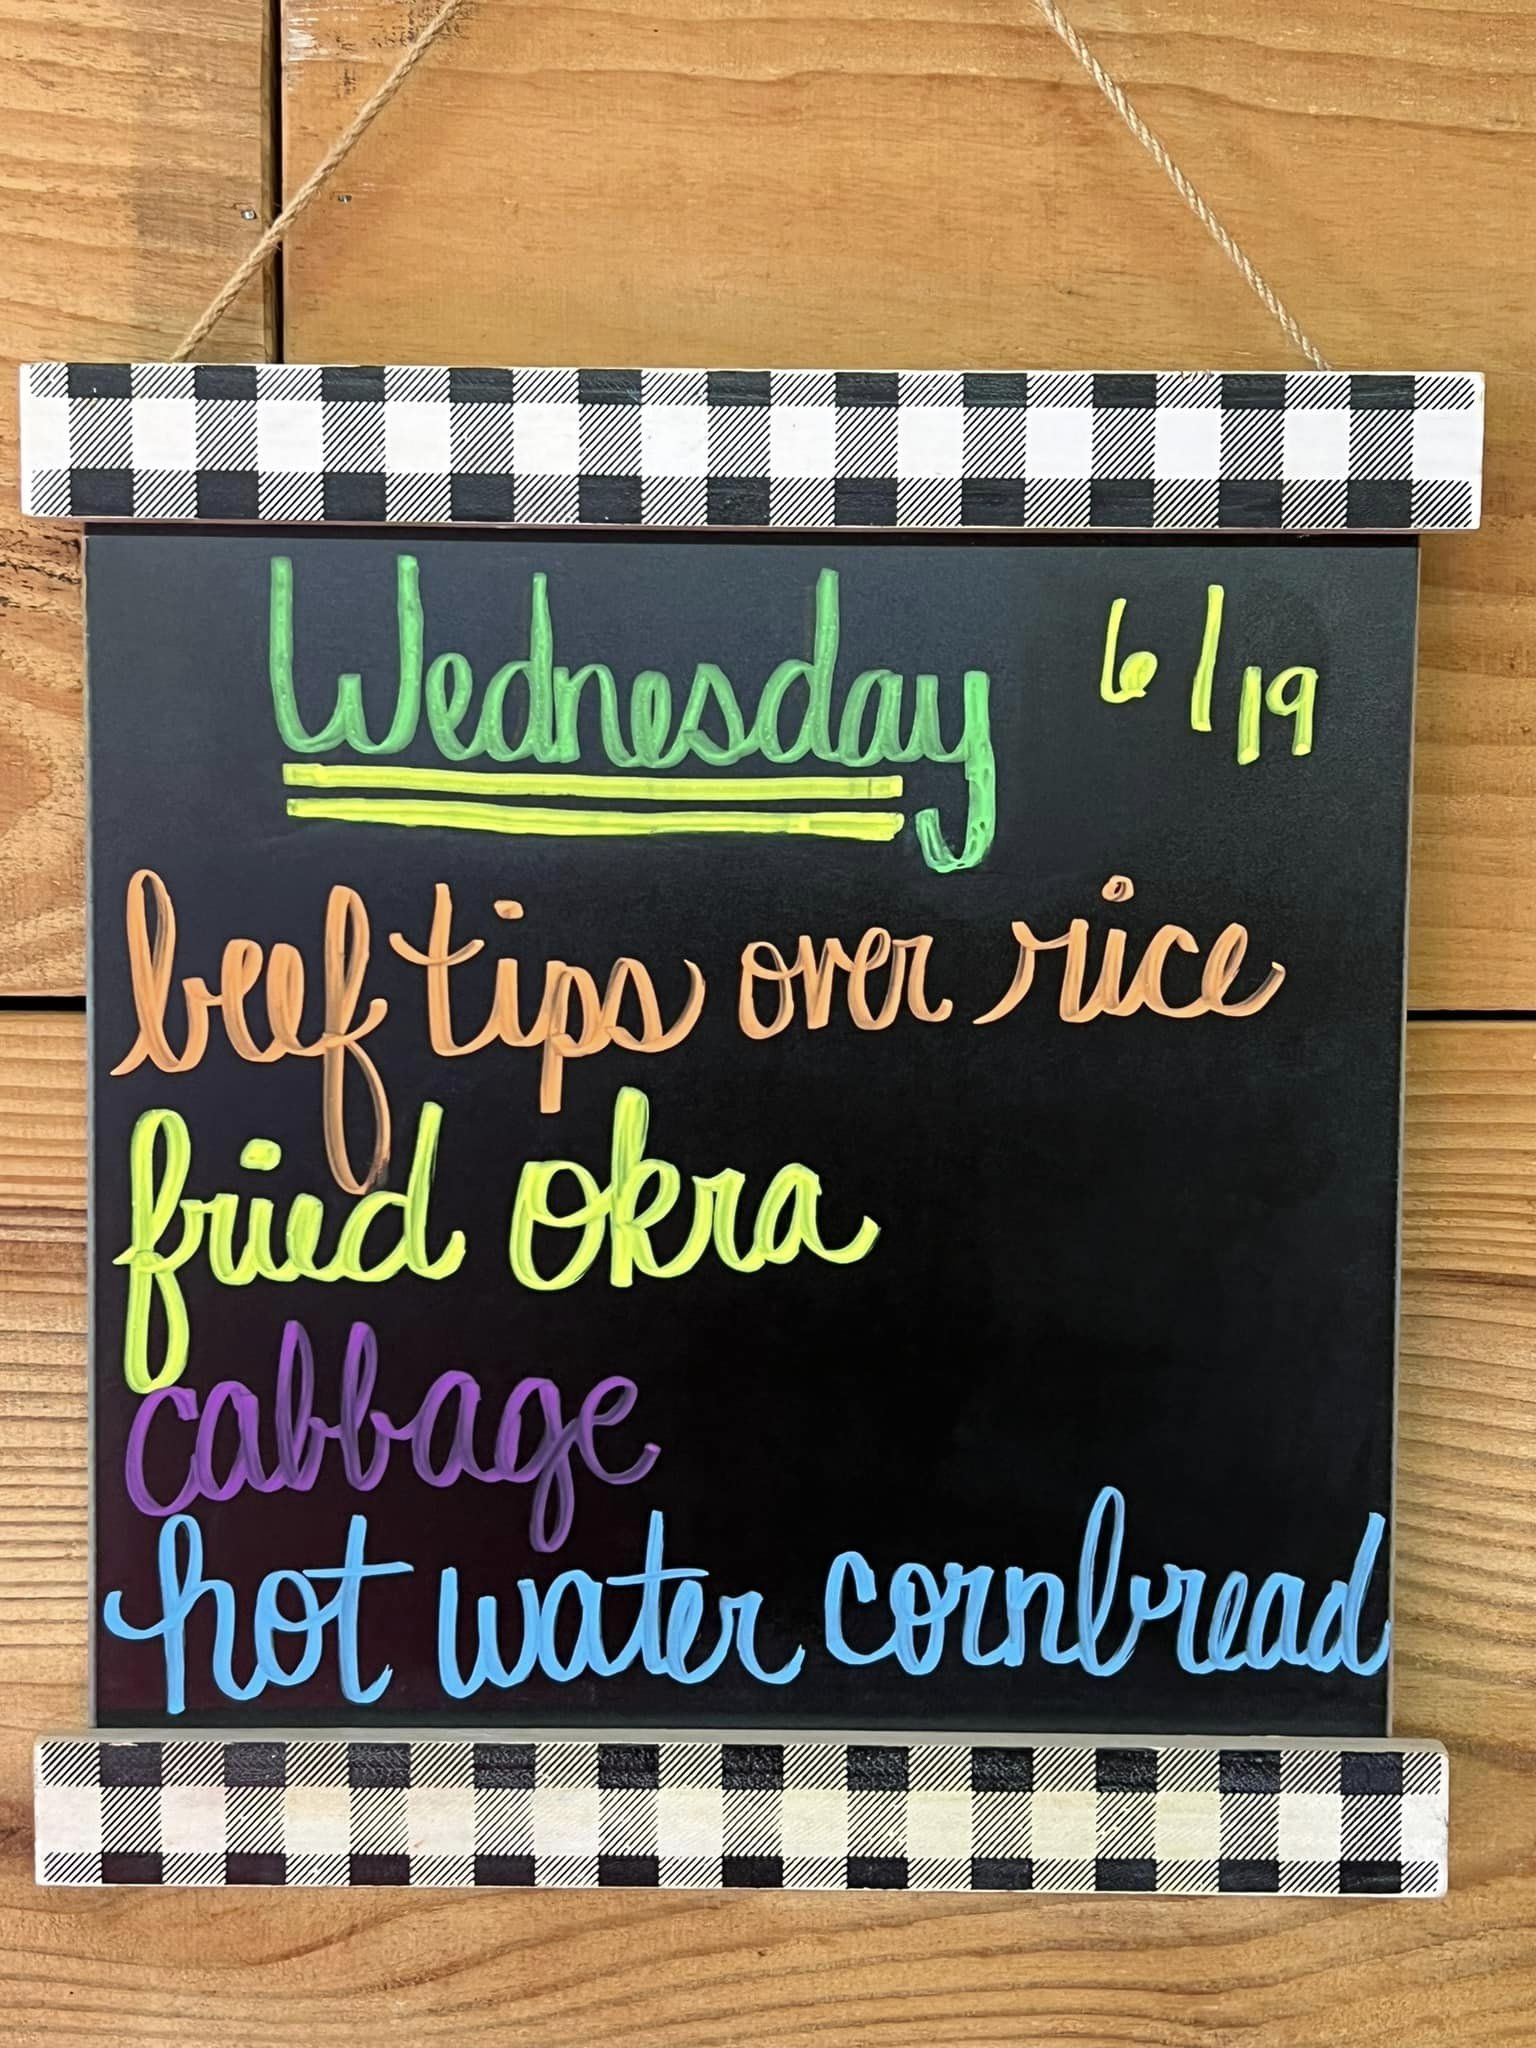 Wednesday 6/19
beef tips over rice
fried okra
cabbage
hot water cornbread